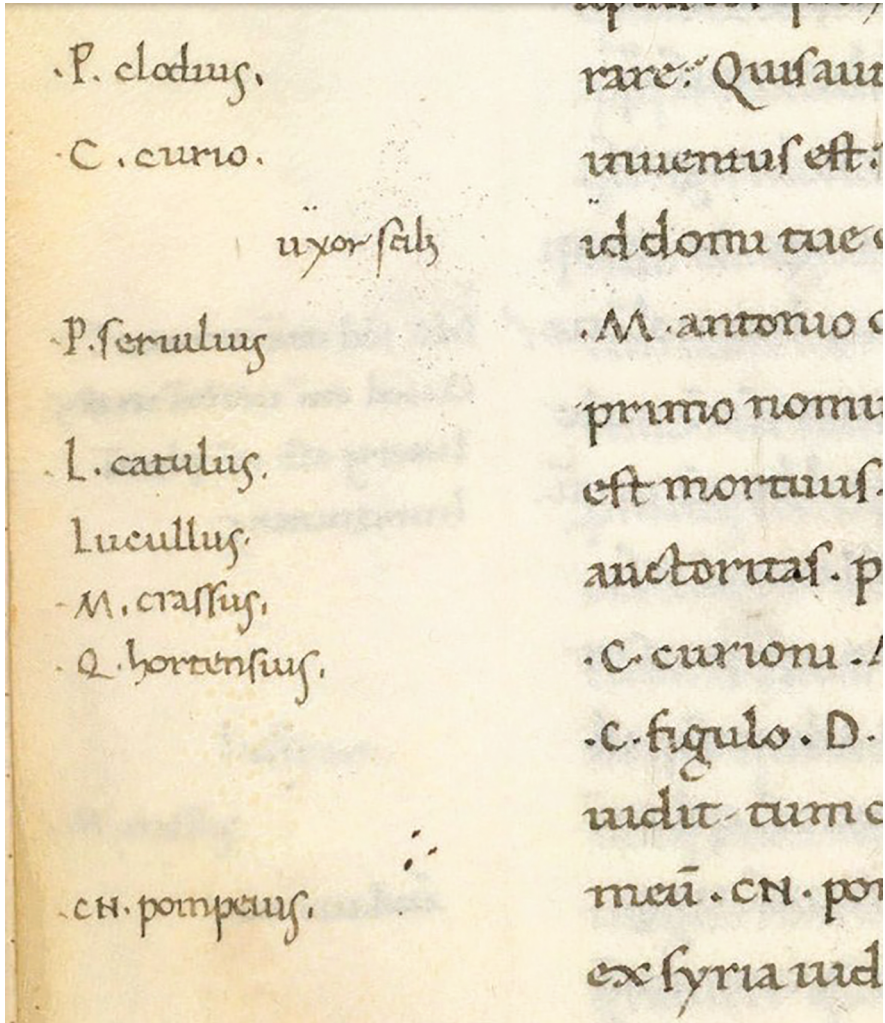 .P. clodius.
C. curio.
uxor scilz
P. seruilius
L. catulus.
Lucullus.
M. crassus.
Q. hortensius.
.CN. pompeius.
rare: Quis aut
inuentus est.
id domi tue
.M. antonio
primo nomi
est mortuus.
auctoritas. p
.C. curioni.
.C. figulo. D.
uidit tum
meū. CN. pom
ex syria uid